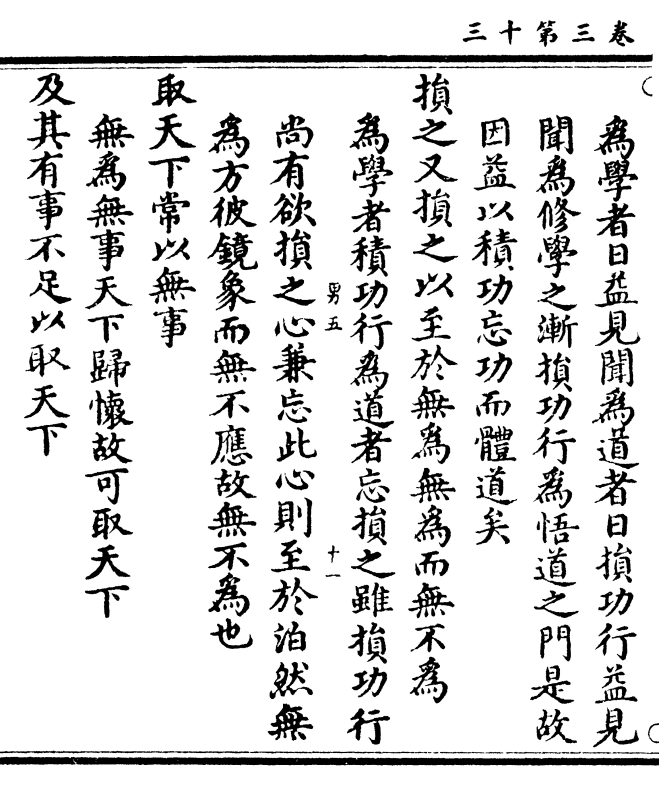 卷三第十三
為學者日益見聞為道者日損功行益見
聞為修學之漸損功行為悟道之門是故
因益以積功忘功而體道矣
損之又損之以至於無為無為而無不為
為學者積功行為道者忘損之雖損功行
男五
十一
尚有欲損之心兼忘此心則至於泊然無
為方彼鏡象而無不應故無不為也
取天下常以無事
無為無事天下歸懷故可取天下
及其有事不足以取天下